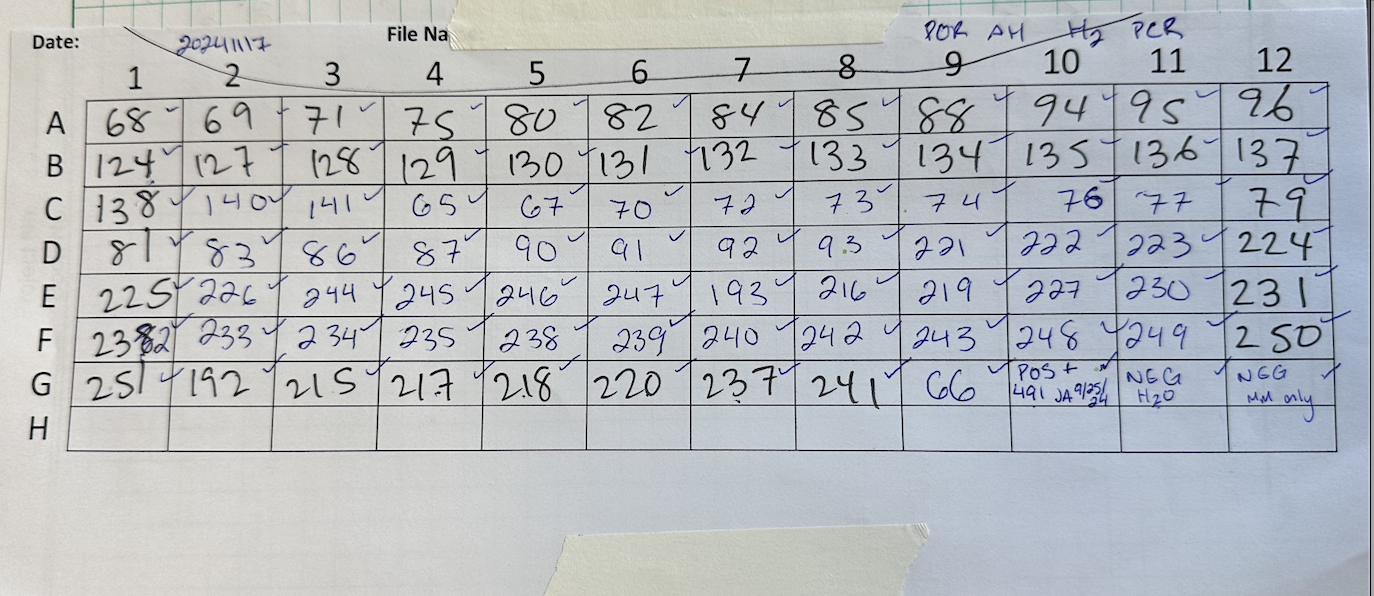 Date: 20241117 File Na POR AH H2 PCR
1 2 3 4 5 6 7 8 9 10 11 12
A 68 69 71 75 80 82 84 85 88 94 95 96
B 124 127 128 129 130 131 132 133 134 135 136 137
C 138 140 141 65 67 70 72 73 74 76 77 79
D 81 83 86 87 90 91 92 93 221 222 223 224
E 225 226 244 245 246 247 193 216 219 227 230 231
F 232 233 234 235 238 239 240 242 243 248 249 250
G 251 192 215 217 218 220 237 241 66 POS + 491 JA 9/25/24 NEG H2O NEG MM only
H